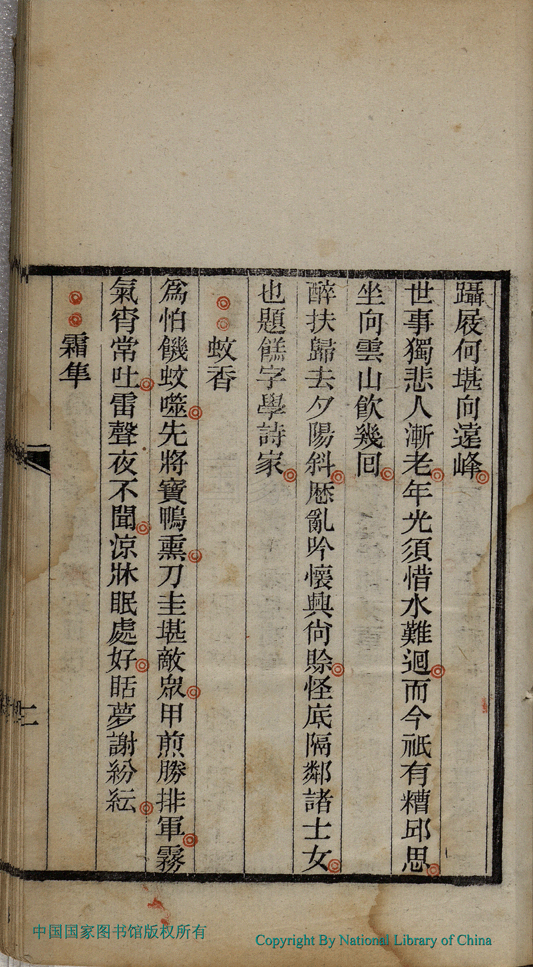 躡屐何堪向遠峰
世事獨悲人漸老年光須惜水難迴而今祇有糟邱思
坐向雲山飲幾囘
醉扶歸去夕陽斜歷亂吟懷興尙賒怪底隔鄰諸士女
也題餻字學詩家
蚊香
爲怕饑蚊噬先將寶鴨熏刀圭堪敵眾甲煎勝排軍霧
氣宵常吐雷聲夜不聞涼牀眠處好恬夢謝紛紜
霜隼
二
中国国家图书馆版权所有
Copyright By National Library of China